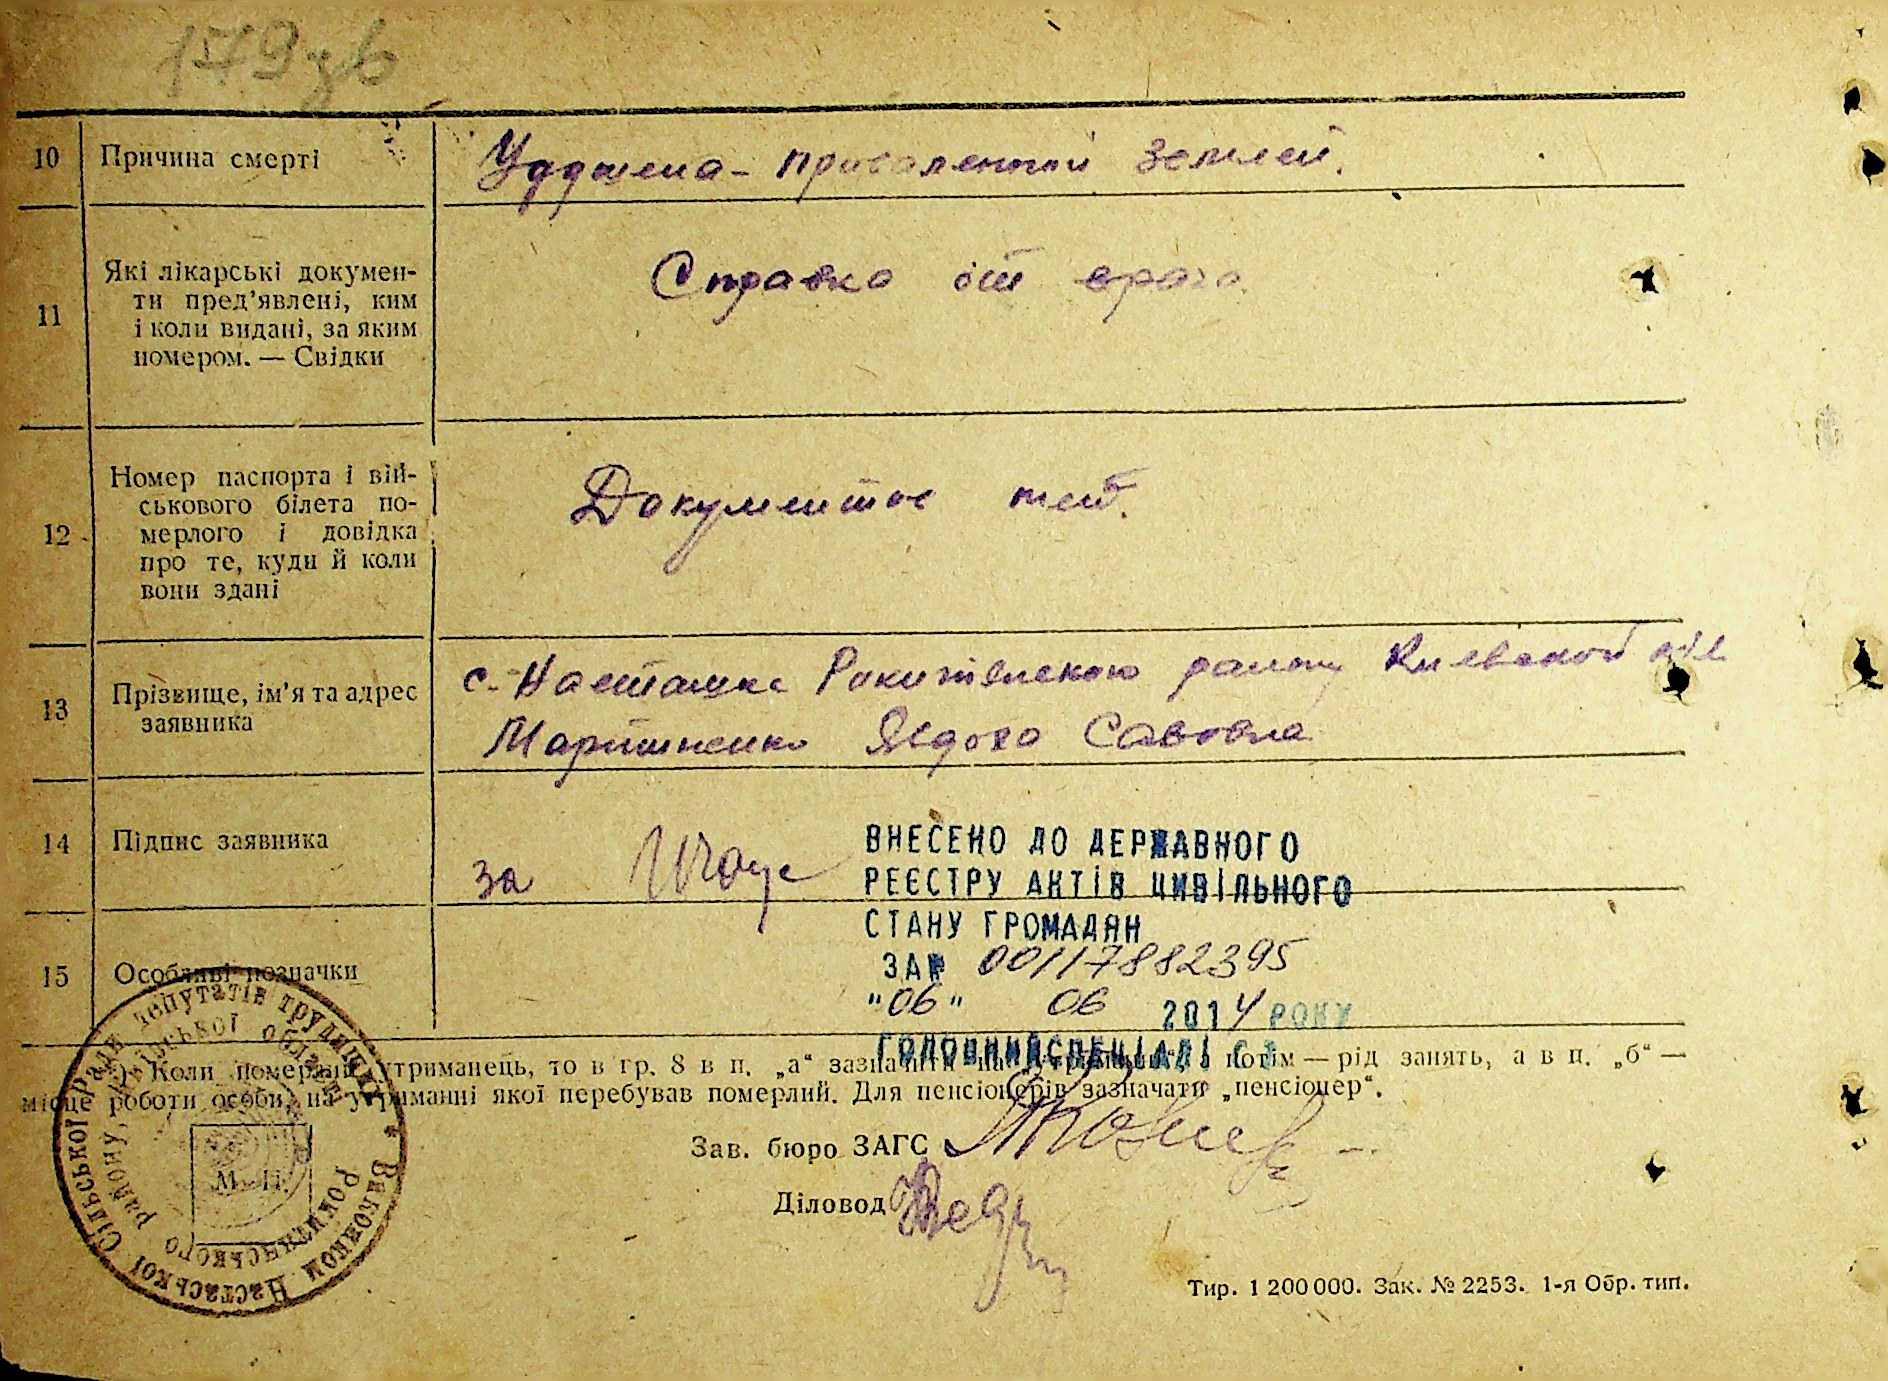 179зв
10 Причина смерті
Удушена - приваленной землей.
11 Які лікарські докумен-
ти пред’явлені, ким
і коли видані, за яким
номером. — Свідки
Справка от врача
12 Номер паспорта і вій-
ськового білета по-
мерлого і довідка
про те, куди й коли
вони здані
Документов нет.
13 Прізвище, ім’я та адрес
заявника
с. Насташка Рокитянского району Киевской обл
Мартиненко Явдоха Савовна
14 Підпис заявника
за
ВНЕСЕНО ДО ДЕРЖАВНОГО
РЕЄСТРУ АКТІВ ЦИВІЛЬНОГО
СТАНУ ГРОМАДЯН
ЗА № 00117882395
"06" 06 2014 РОКУ
ГОЛОВНИЙ СПЕЦІАЛІСТ
15 Особливі позначки
Коли померлий утриманець, то в гр. 8 в п. „а“ зазначити на „утриманні“, а потім — рід занять, а в п. „б“ —
місце роботи особи, на утриманні якої перебував померлий. Для пенсіонерів зазначати „пенсіонер“.
Зав. бюро ЗАГС
Діловод
М. П.
Виконком Насташської Сільської ради депутатів трудящих
Рокитнянського району, Київської області
Тир. 1 200 000. Зак. № 2253. 1-я Обр. тип.